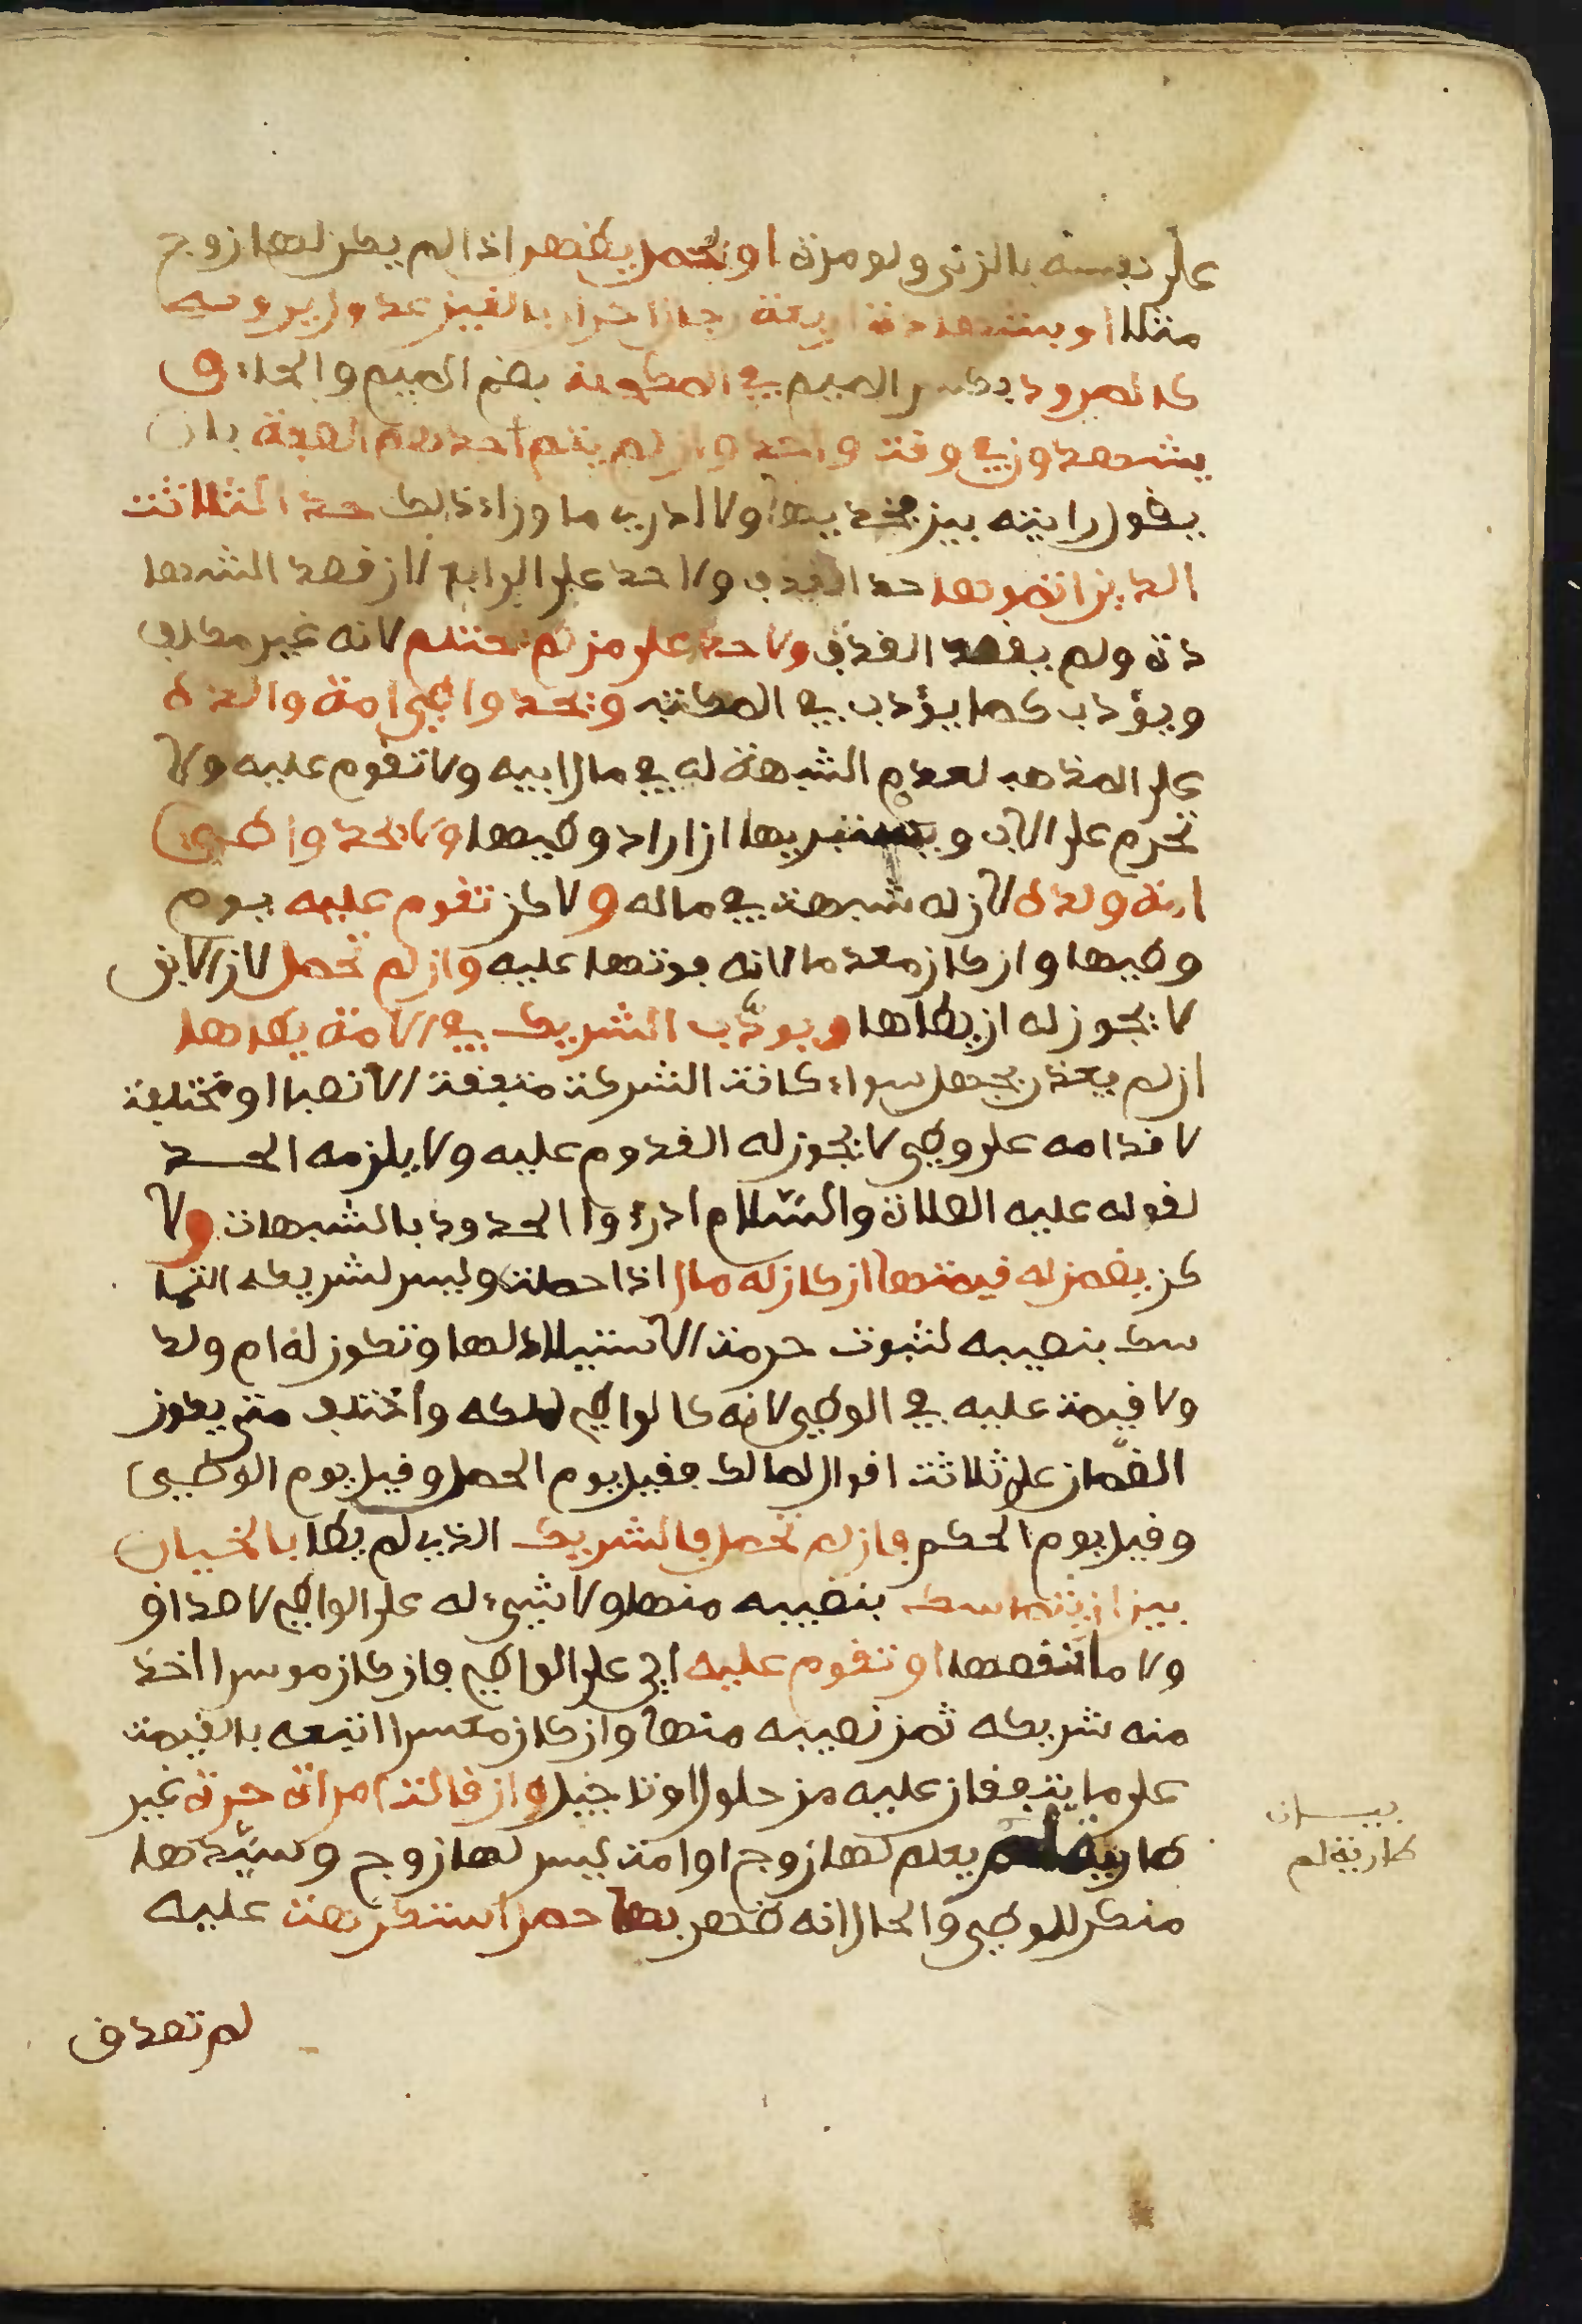 على نفسه بالزنى ولو مرة او بحمل يظهر اذا لم يكن لها زوج
مثلا او بشهادة اربعة رجال احرار بالغين عدول يرونه
كالمرود بكسر الميم في المكحلة بضم الميم والحاء و
يشهدون في وقت واحد وان لم يتم احدهم الصفة بان
يقول رايته بين فخذيها ولا ادري ما وراء ذلك حد الثلاثة
الذين اتموها حد القذف ولا حد على الرابع لان قصد الشها
دة ولم يقصد القذف ولا حد على من لم يحتلم لانه غير مكلف
ويؤدب كما يؤدب في المكتب ويحد واطئ امة والده
على المذهب لعدم الشبهة له في مال ابيه ولا تقوم عليه ولا
تحرم على الاب ويستبريها ان اراد وطيها ولا يحد واطئ
امة ولده لان له شبهة في ماله ولاكن تقوم عليه يوم
وطيها وان كان معدما لانه فوتها عليه وان لم تحمل لان الابن
لا يجوز له ان يطاها ويودب الشريك في الامة يطاها
ان لم يعذر بجهل سواء كانت الشركة متفقة الانصبا او مختلفة
لاقدامه على وطئ لا يجوز له القدوم عليه ولا يلزمه الحد
لقوله عليه الصلاة والسلام ادرءوا الحدود بالشبهات ولا
كن يضمن له قيمتها ان كان له مال اذا حملت وليس لشريكه التما
سك بنصيبه لثبوت حرمة الاستيلاد لها وتكون له ام ولد
ولا قيمة عليه في الوطئ لانه كالواطئ لملكه واختلف متى يكون
الضمان على ثلاثة اقوال لمالك فقيل يوم الحمل وقيل يوم الوطئ
وقيل يوم الحكم فان لم تحمل فالشريك الذي لم يطا بالخيار
بين ان يتماسك بنصيبه منها ولا شيء له على الواطئ لا صداق
ولا ما نقصها او تقوم عليه اي على الواطئ فان كان موسرا اخذ
منه شريكه ثمن نصيبه منها وان كان معسرا اتبعه بالقيمة
على ما يتفقان عليه من حلول او تاجيل وان قالت امراة حرة غير
طارية لم يعلم لها زوج او امة ليس لها زوج وسيدها
منكر للوطئ والحال انه ظهر بها حمل استكرهت عليه
لم تصدق
بيان
طارية لم